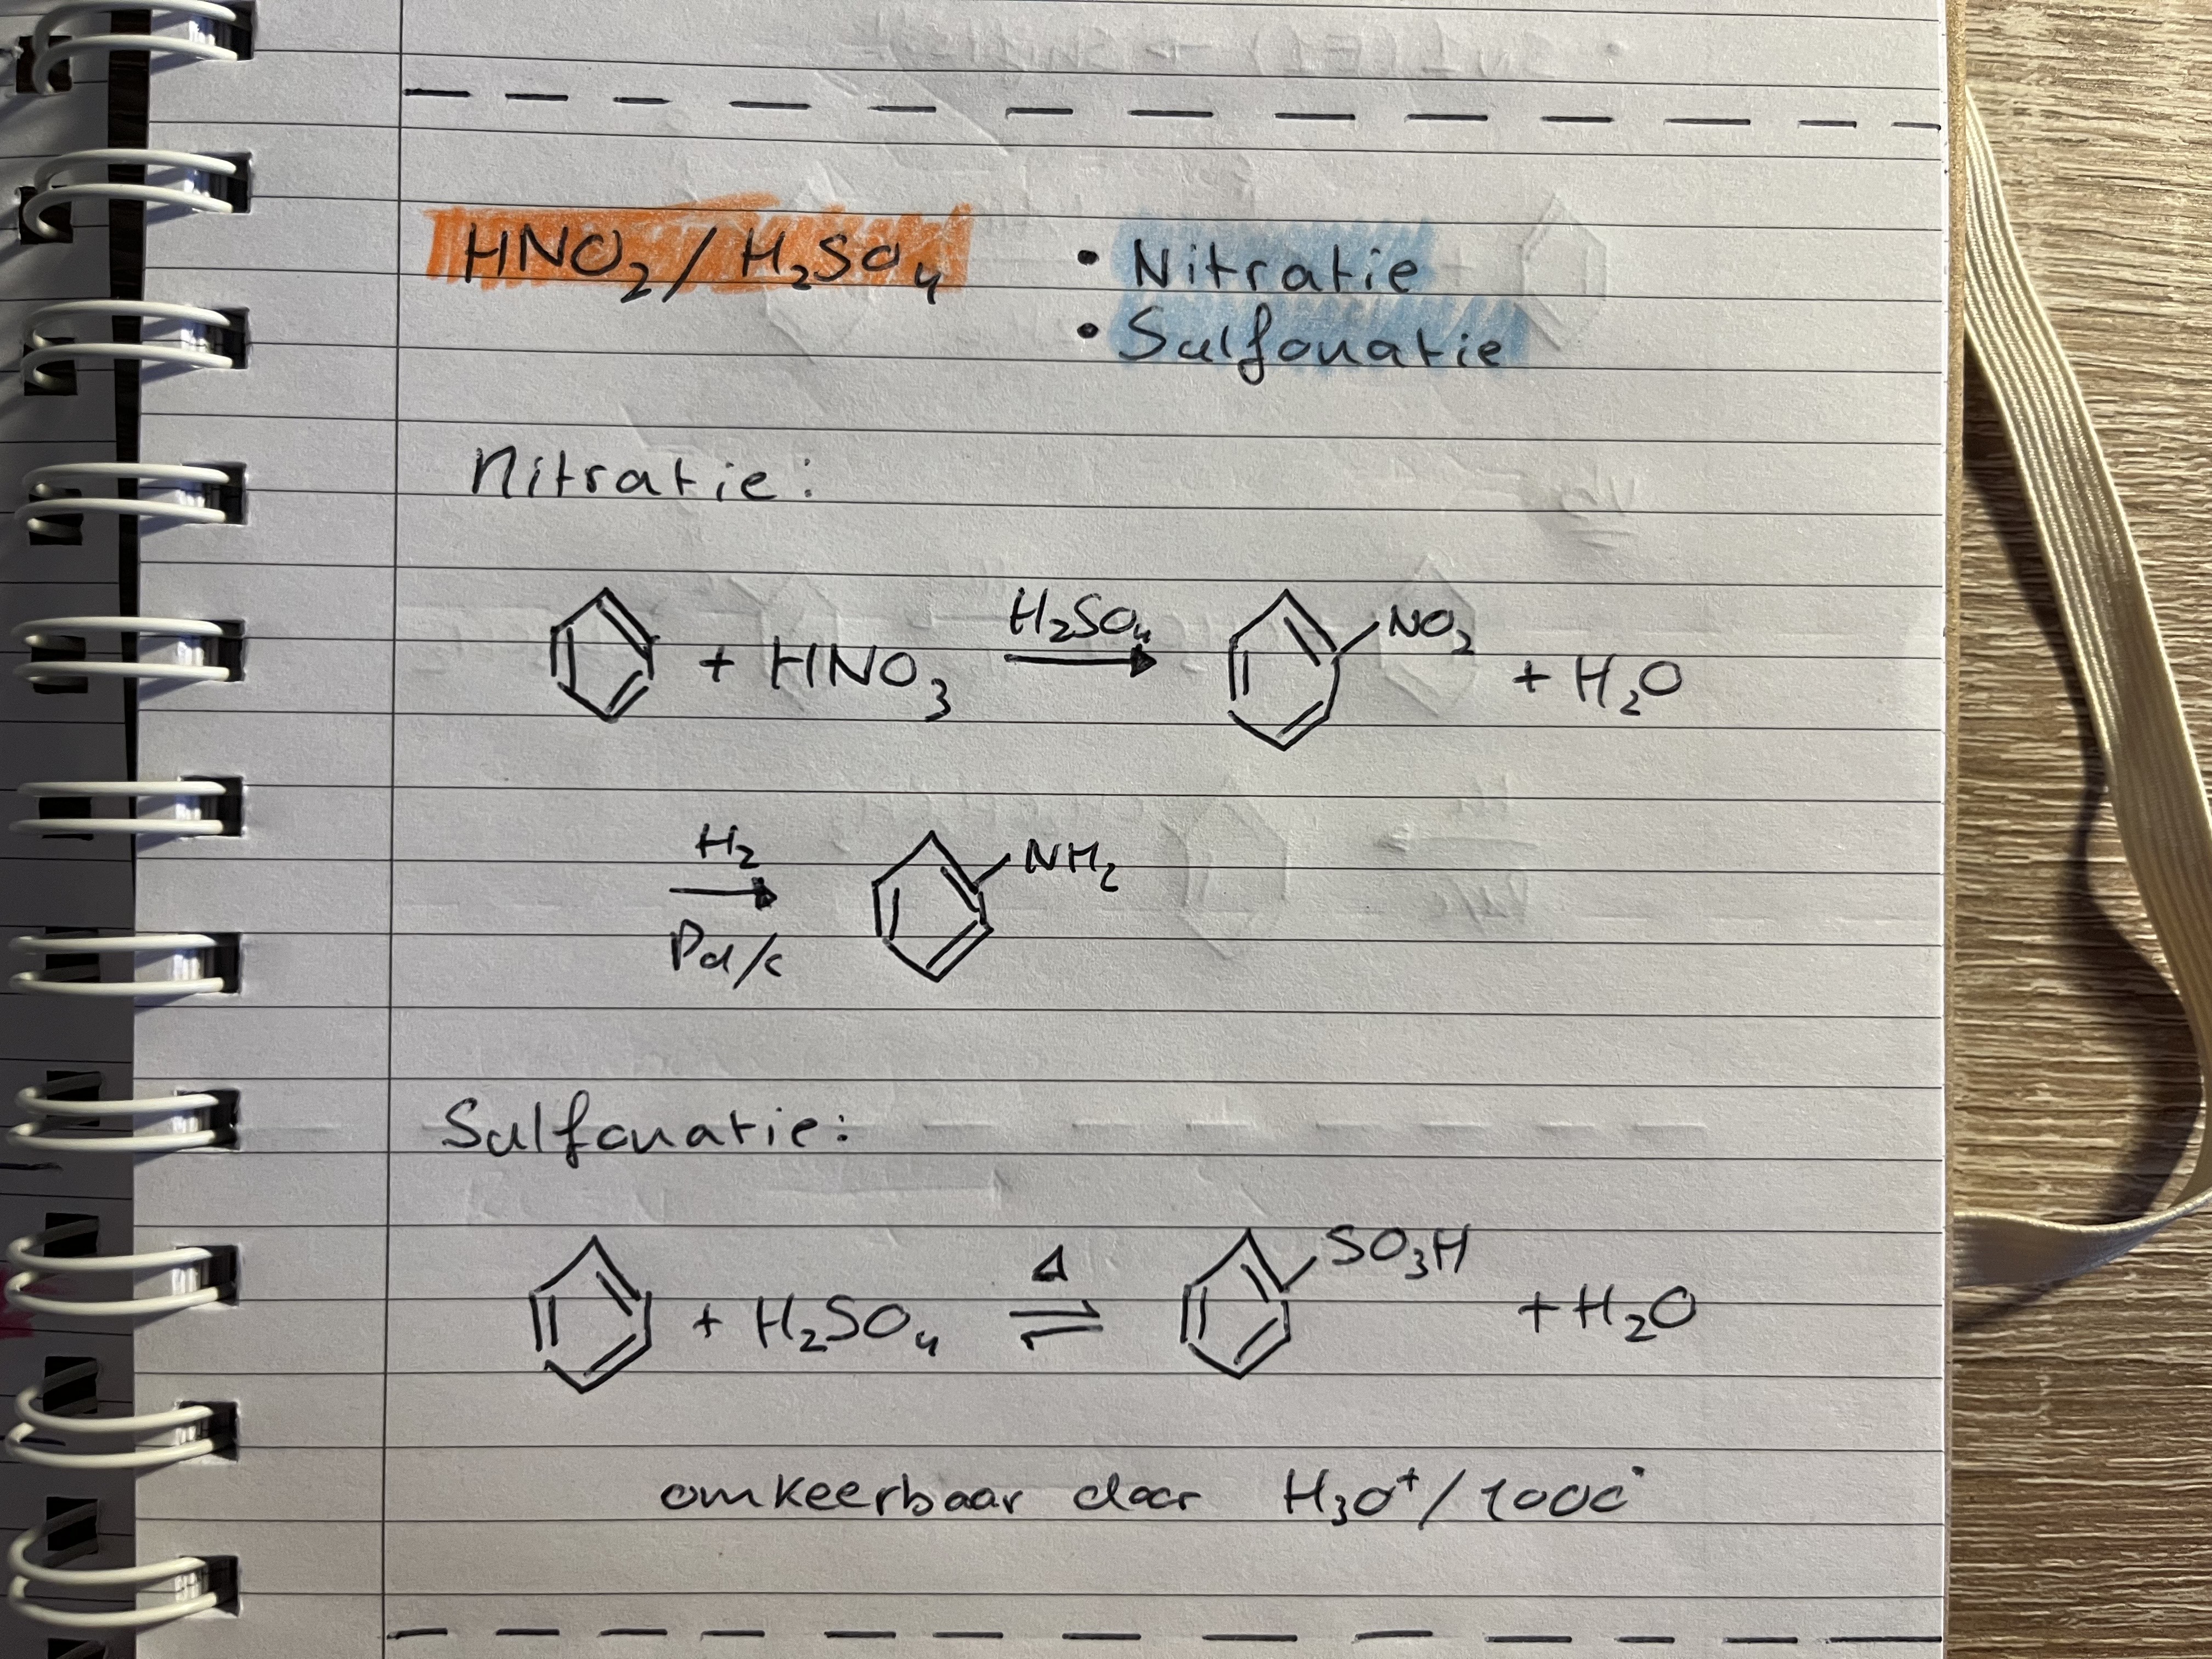 HNO₂/H₂SO₄
• Nitratie
• Sulfonatie
Nitratie:
+ HNO₃ H₂SO₄ NO₂ + H₂O
H₂ NH₂
Pd/c
Sulfonatie:
+ H₂SO₄ Δ ⇌ SO₃H + H₂O
omkeerbaar door H₃O⁺/100C°